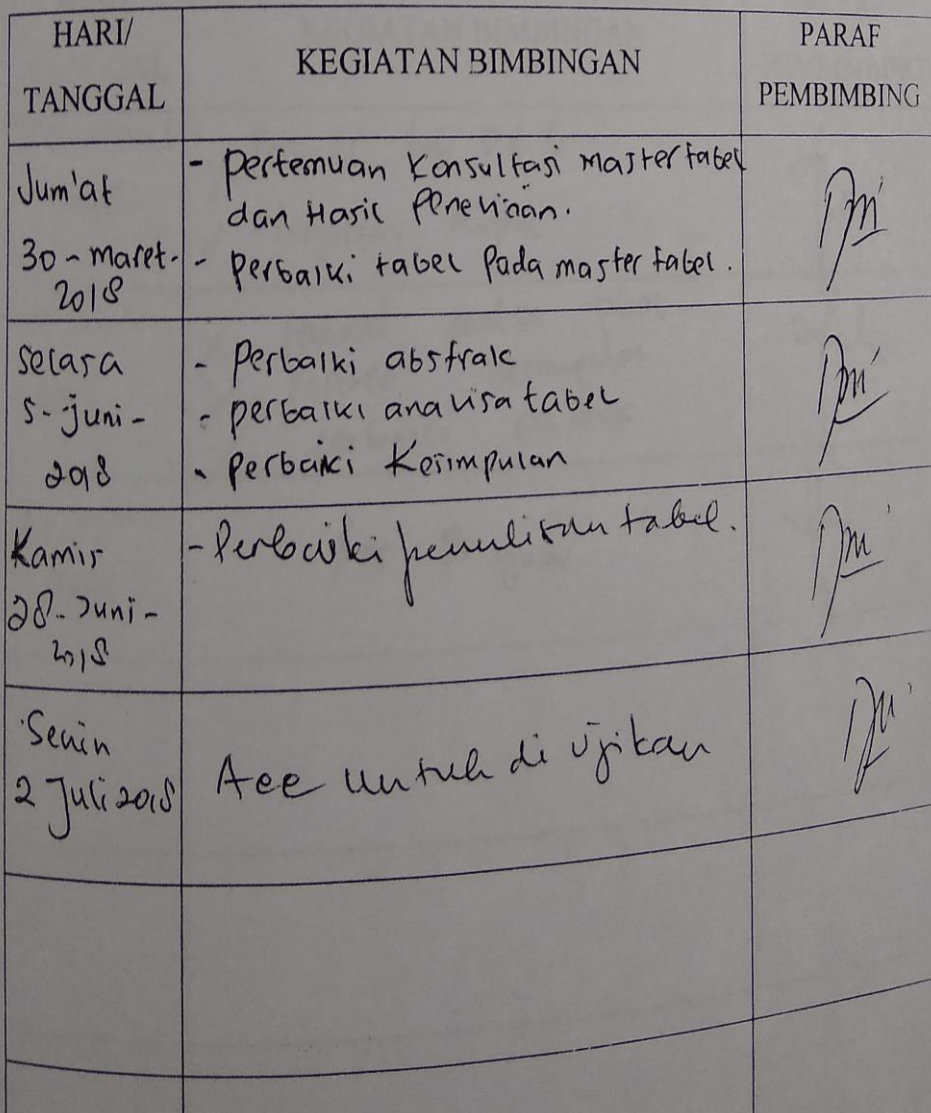 HARI/
TANGGAL
KEGIATAN BIMBINGAN
PARAF
PEMBIMBING
Jum'at
30-maret-
2018
- Pertemuan Konsultasi Master tabel
dan Hasil Penelitian.
- Perbaiki tabel Pada master tabel.
Selasa
5-juni-
2018
- Perbaiki abstrak
- perbaiki analisa tabel
- Perbaiki Kesimpulan
Kamis
28-Juni-
2018
- Perbaiki penulisan tabel.
Senin
2 Juli 2018
Acc untuk di ujikan